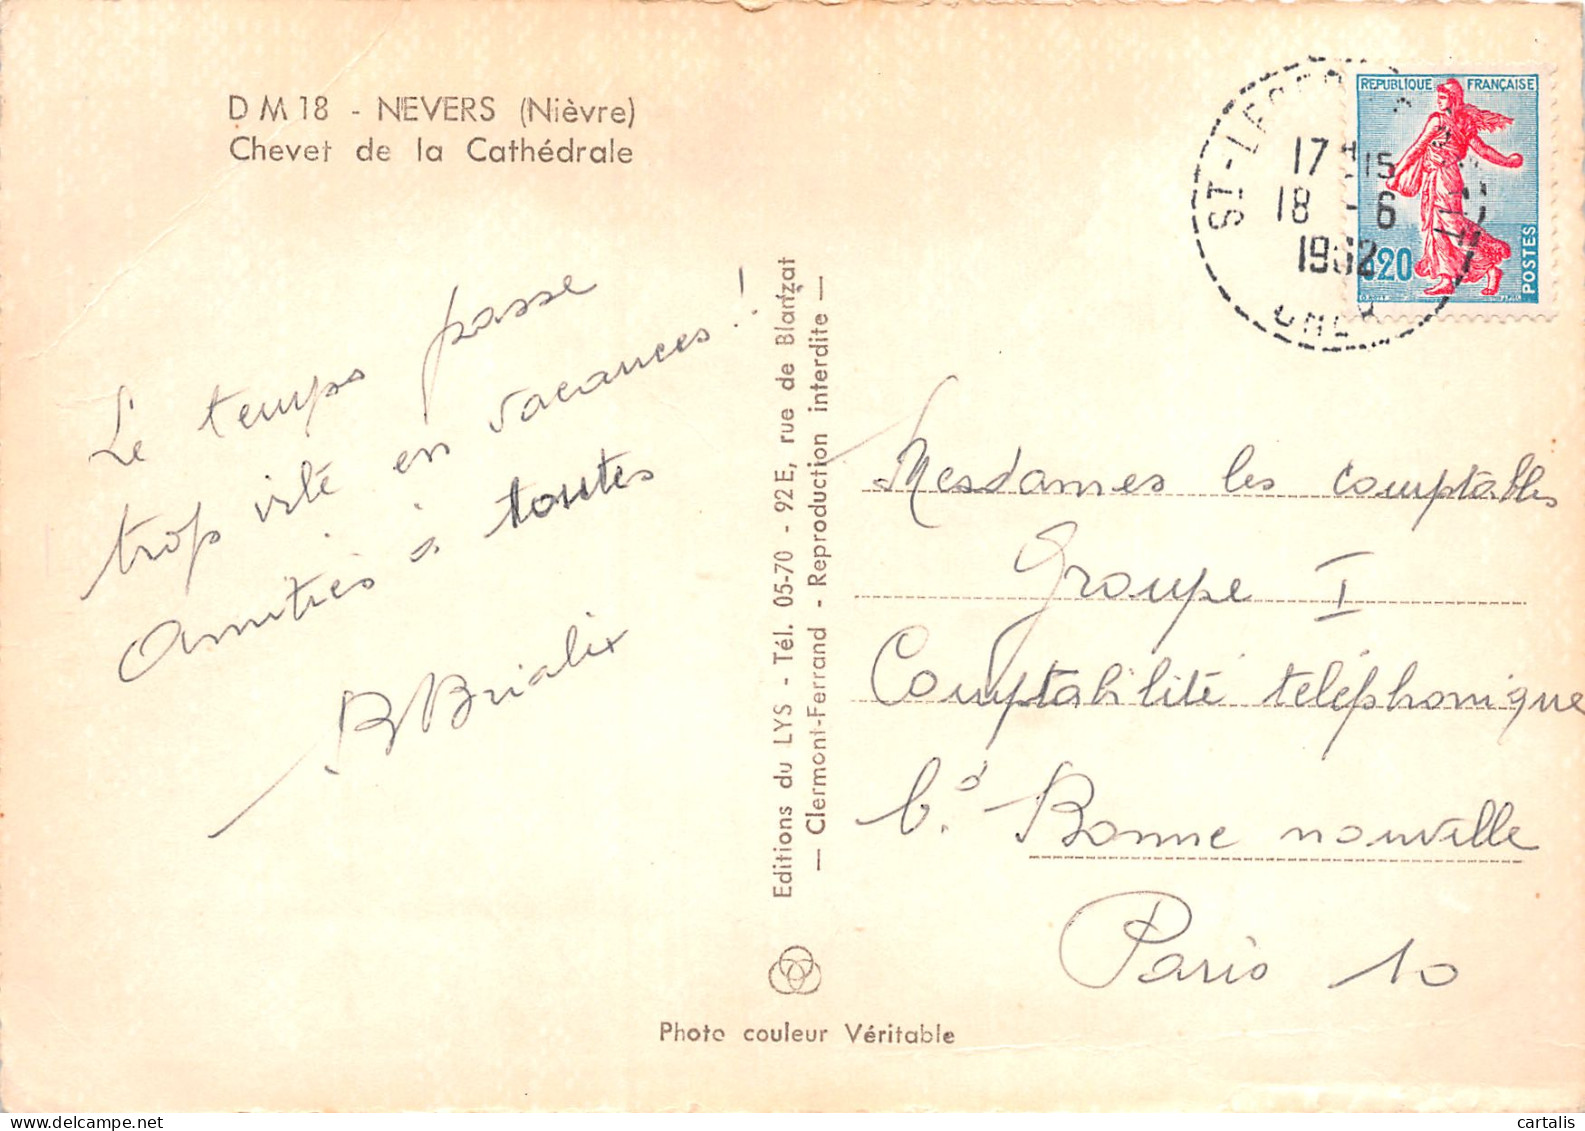 D M 18 - NEVERS (Nièvre)
Chevet de la Cathédrale
Le temps passe
trop vite en vacances !
Amitiés à toutes
Editions du LYS - Tél. 05-70 - 92 E, rue de Blanzat
— Clermont-Ferrand - Reproduction interdite —
Photo couleur Véritable
REPUBLIQUE FRANÇAISE
0,20
POSTES
17 H 15
18 - 6
1962
CHER
Mesdames les comptables
Groupe I
Comptabilité téléphonique
Bd Bonne nouvelle
Paris 10
cartalis